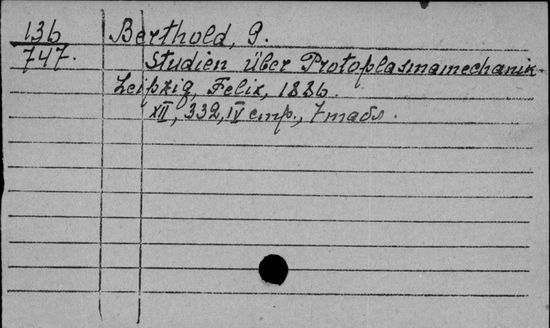 136 Berthold, G.
747. Studien über Protoplasmamechanik.
Leipzig, Felix, 1886.
XII, 332, IV стр., 7 табл.